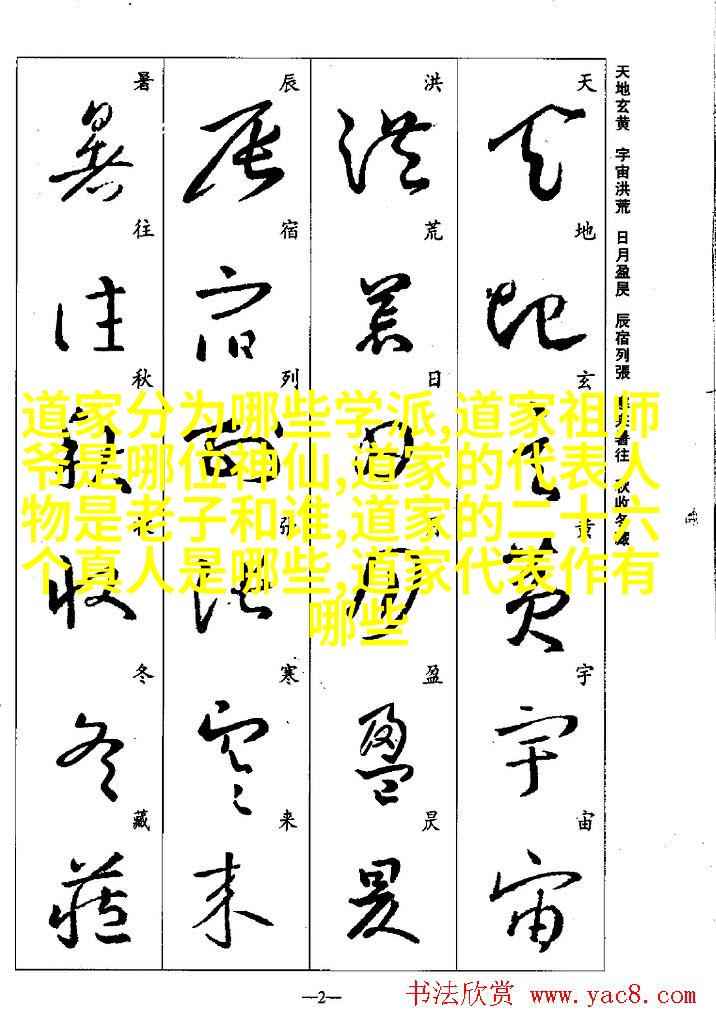 天地玄黄 宇宙洪荒 日月盈昃 辰宿列張 暑往 秋收冬藏
天
天
地
地
玄
玄
黄
黄
宇
宇
宙
宙
洪
洪
荒
荒
日
日
月
盈
盈
昃
昃
辰
辰
宿
宿
列
列
張
張
寒
寒
来
来
暑
暑
往
往
秋
秋
收
冬
冬
藏
藏
道家分为哪些学派,道家祖师
爷是哪位神仙,道家的代表人
物是老子和谁,道家的二十六
个真人是哪些,道家代表作有
哪些
—2—
书法欣赏 www.yac8.com